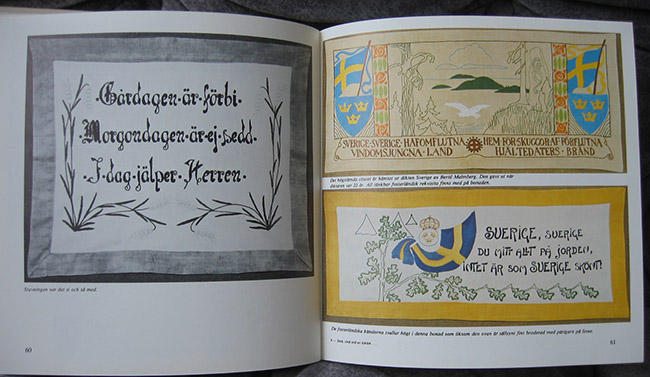 Gårdagen·är·förbi
Morgondagen·är·ej·sedd
I·dag·hjälper·Herren·
Stavningen var det si och så med.
60
SVERIGE·SVERIGE·HAFOMFLUTNA
VINDOMSJUNGNA·LAND
HEM·FÖR·SKUGGOR·AF·FÖRFLUTNA
HJÄLTEDATERS·BRAND
Det högstämda citatet är hämtat ur dikten Sverige av Bertil Malmberg. Den gavs ut när
diktaren var 22 år. All tänkbar fosterländsk rekvisita finns med på bonaden.
SVERIGE, SVERIGE
DU MITT ALLT PÅ JORDEN,
INTET ÄR SOM SVERIGE SKÖNT!
De fosterländska känslorna svallar högt i denna bonad som liksom den ovan är sällsynt fint broderad med pärlgarn på linne.
61